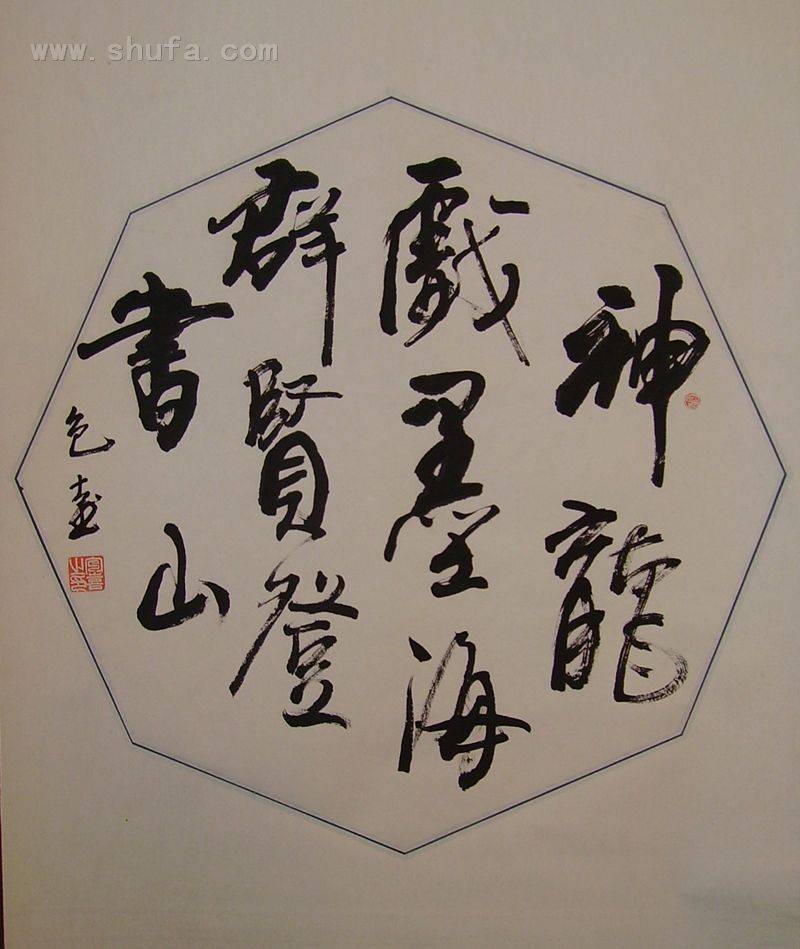 www.shufa.com
神龍
戲墨海
群賢登
書山